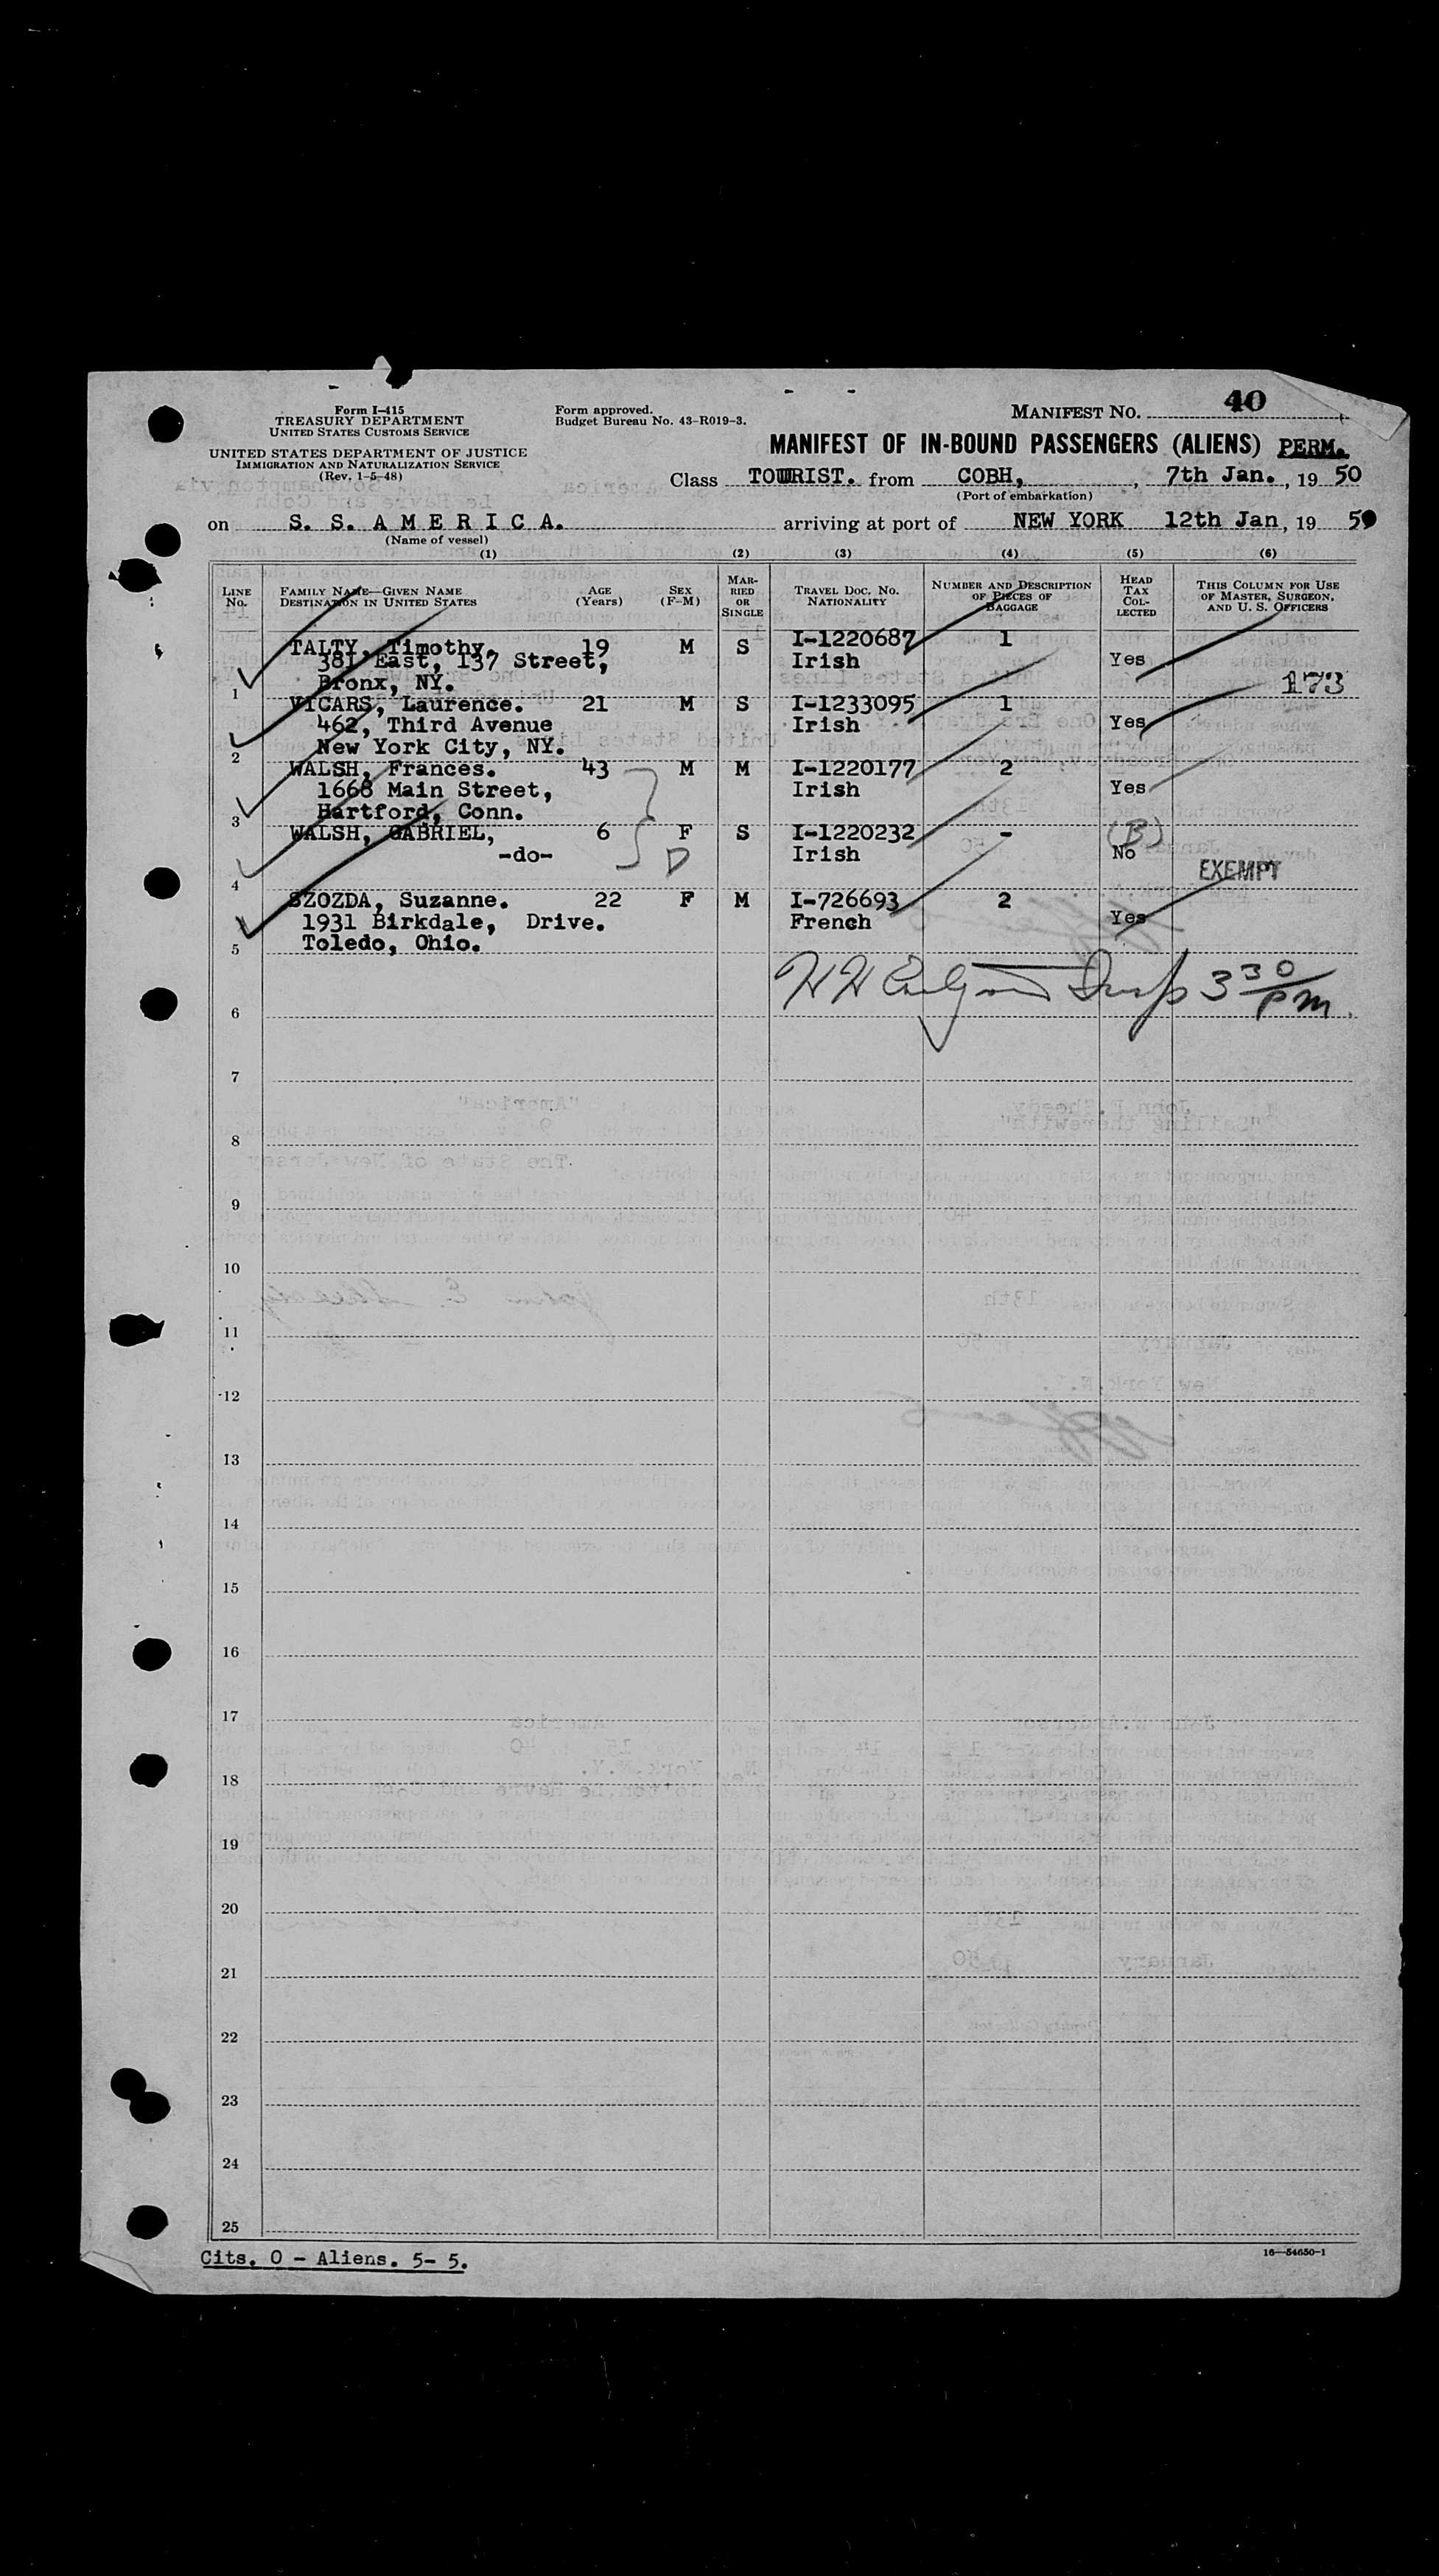 Form I-415
TREASURY DEPARTMENT
UNITED STATES CUSTOMS SERVICE
UNITED STATES DEPARTMENT OF JUSTICE
IMMIGRATION AND NATURALIZATION SERVICE
(Rev. 1-5-48)
Form approved.
Budget Bureau No. 43-R019-3.
MANIFEST NO. 40
MANIFEST OF IN-BOUND PASSENGERS (ALIENS) PERM.
Class TOURIST. from COBH, , 7th Jan. , 19 50
(Port of embarkation)
on S. S. A M E R I C A. arriving at port of NEW YORK 12th Jan, 19 50
(Name of vessel)
(1) (2) (3) (4) (5) (6)
LINE No.
FAMILY NAME—GIVEN NAME
DESTINATION IN UNITED STATES
AGE (Years)
SEX (F-M)
MARRIED OR SINGLE
TRAVEL DOC. NO.
NATIONALITY
NUMBER AND DESCRIPTION OF PIECES OF BAGGAGE
HEAD TAX COLLECTED
THIS COLUMN FOR USE OF MASTER, SURGEON, AND U. S. OFFICERS
TALTY, Timothy. 19 M S I-1220687 1
381 East, 137 Street, Irish Yes
1 Bronx, NY. 173
VICARS, Laurence. 21 M S I-1233095 1
462, Third Avenue Irish Yes
2 New York City, NY.
WALSH, Frances. 43 M M I-1220177 2
1668 Main Street, Irish Yes
3 Hartford, Conn.
WALSH, GABRIEL, 6 F S I-1220232 - (B)
-do- D Irish No
4 EXEMPT
SZOZDA, Suzanne. 22 F M I-726693 2
1931 Birkdale, Drive. French Yes
5 Toledo, Ohio.
6 Insp 3 30 PM.
7
8
9
10
11
12
13
14
15
16
17
18
19
20
21
22
23
24
25
Cits. 0 - Aliens. 5- 5.
16—54650-1